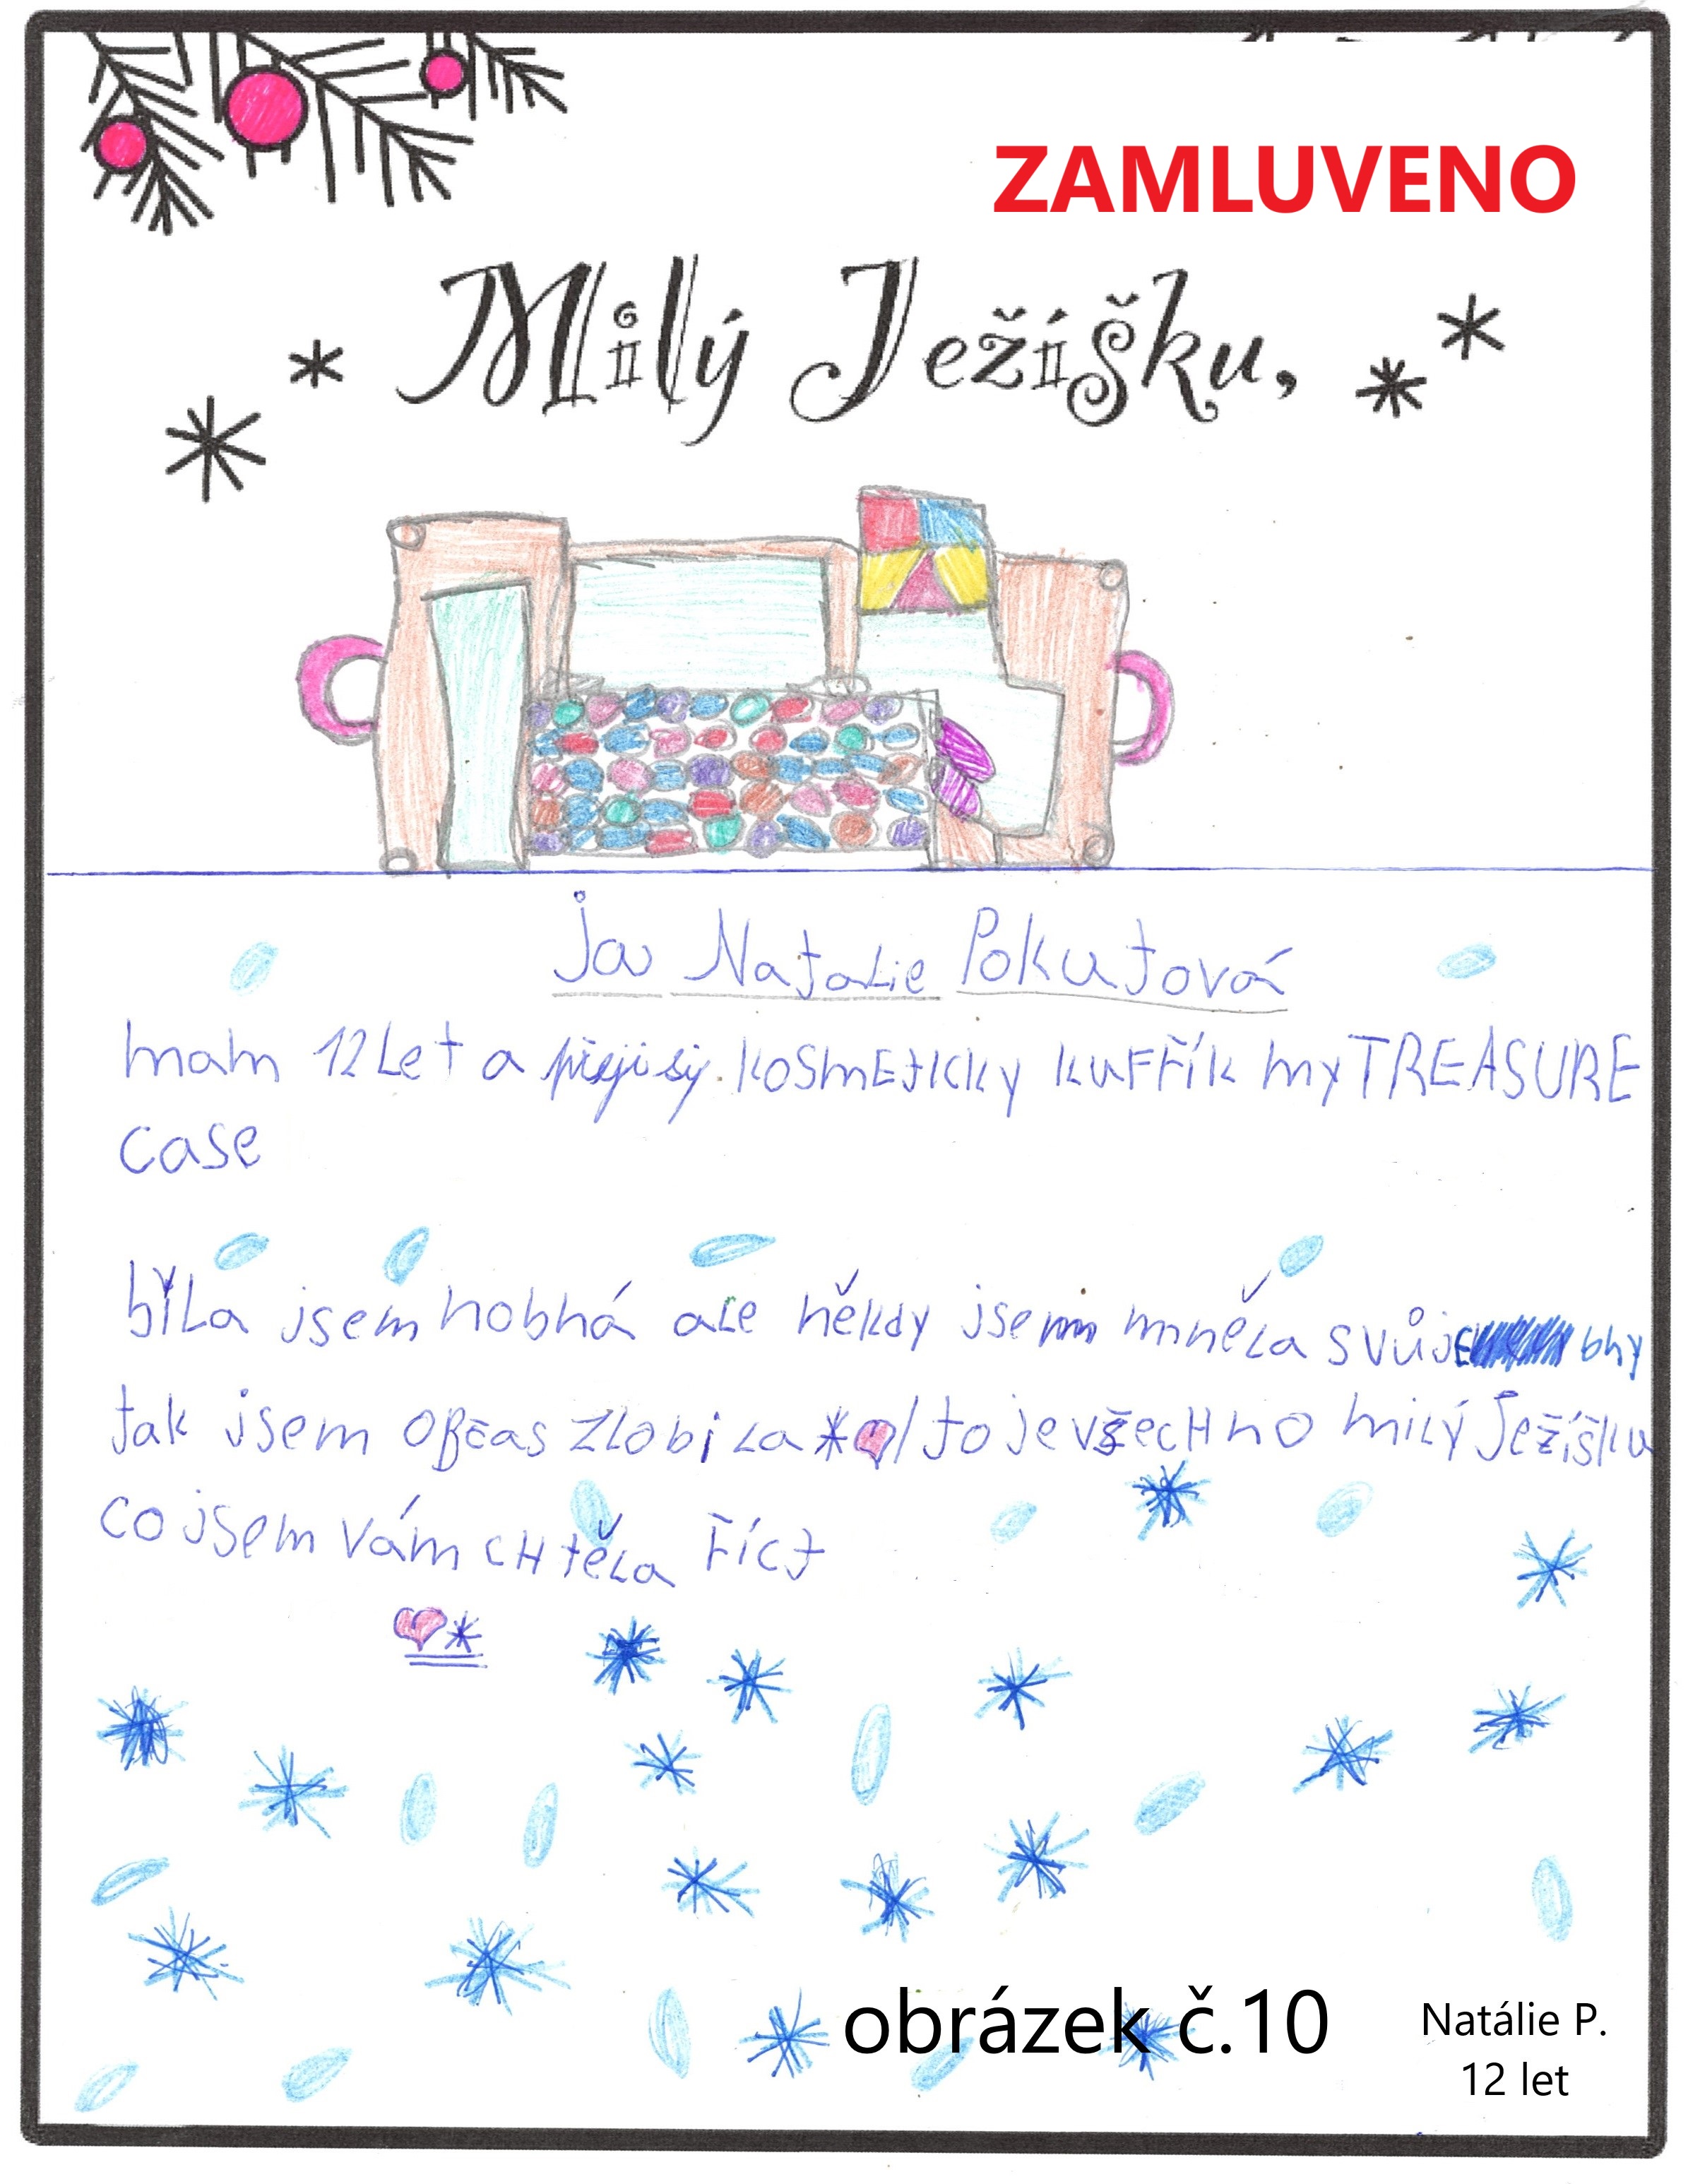 ZAMLUVENO
Milý Ježíšku,
ja Natalie Pokutová
mam 12 Let a přeji si kosmeticky kuffřík my TREASURE
case
byla jsem hobná ale někdy jsem mněla svůj bny
tak jsem občas zlobila to je všechno milý Ježíšku
co jsem vám chtěla řict
obrázek č.10
Natálie P.
12 let